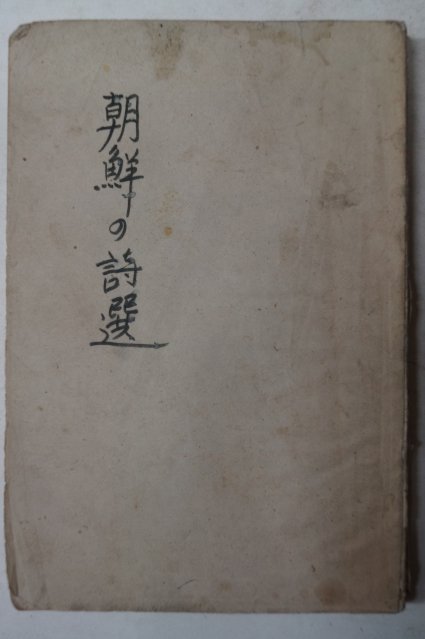 朝鮮の詩選